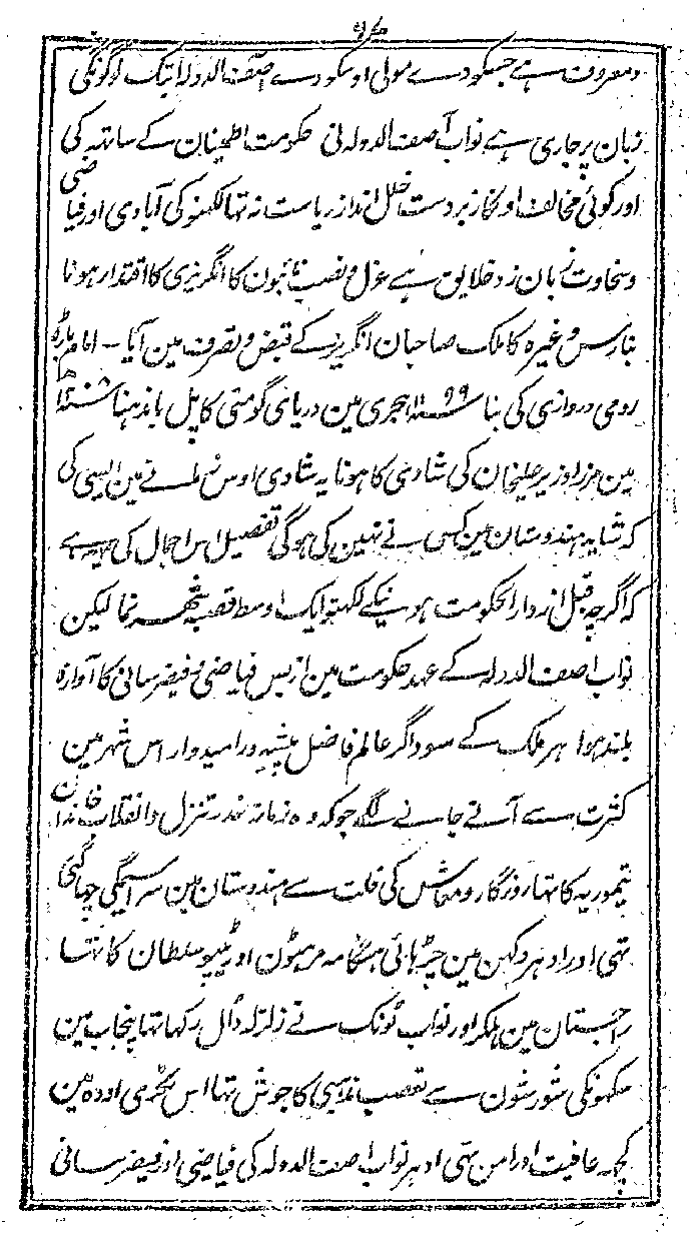 ومعروف ہے جسکو دے مولی اوسکو دے آصف الدولہ ابتک لوگونکی
زبان پر جاری ہے نواب آصف الدولہ نی حکومت اطمینان کے ساتہہ کی
اور کوئی مخالف اونکا زبردست خلل انداز ریاست نہ تہا لکہنو کی آبادی اور فیاضی
وسخاوت زبان زد خلایق ہے عزل ونصب نائبون کا انگریزی کا اقتدار ہونا
بنارس وغیرہ کا ملک صاحبان انگریز کے قبض وتصرف مین آیا - امام باڑہ
رومی دروازی کی بنا ہجری مین دریای گومتی کا پل باندہنا
مین مرزا وزیر علیخان کی شادی کا ہونا یہ شادی اوس زمانے مین ایسی کی
کہ شاید ہندوستان مین کسی نے نہین کی ہوگی تفصیل اس اجمال کی یہہ ہے
کہ اگرچہ قبل از دار الحکومت ہونیکے لکہنو ایک اوسط قصبہ شہر نما لیکن
نواب آصف الدولہ کے عہد حکومت مین از بس فیاضی وفیض رسانی کا آوازہ
بلند ہوا ہر ملک کے سوداگر عالم فاضل پیشہ ور امیدوار اس شہر مین
کثرت سے آنے جانے لگے جو کہ وہ زمانہ غدر تنزل وانقلاب خاندان
تیموریہ کا تہا روزگار ومعاش کی قلت سے ہندوستان مین سراسیمگی چہا گئی
تہی اور ادہر دکہن مین چڑہائی ہنگامہ مرہٹون اور ٹیپو سلطان کا تہا
راجستان مین ہلکر اور نواب ٹونک نے زلزلہ ڈال رکہا تہا پنجاب مین
سکہونکی شورشون سے تعصب مذہبی کا جوش تہا اس اودہ مین
کچہہ عافیت اور امن تہی ادہر نواب آصف الدولہ کی فیاضی اور فیض رسانی